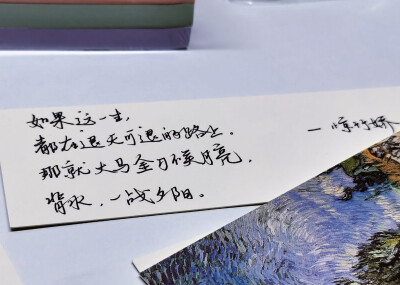 如果这一生,
都在退无可退的路上.
那就大马金刀候月亮,
背水,一战夕阳。
一惊竹娇